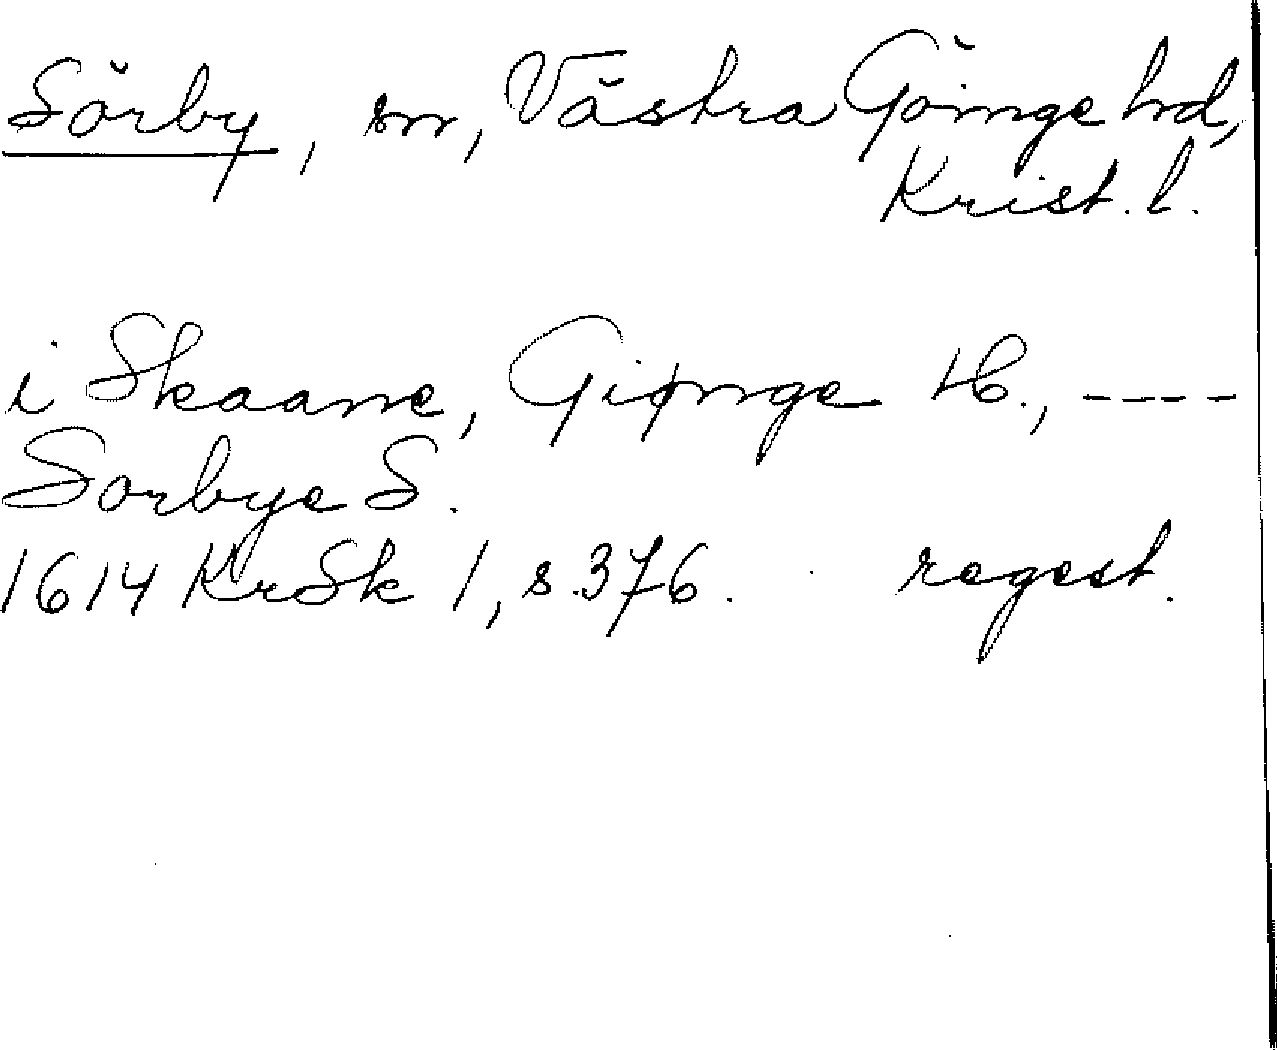 Sörby, sn, Västra Göinge hd,
Krist. l.
i Skaane, Giønge H., ----
Sorbye S.
1614 KrSk 1, s. 376. regest.